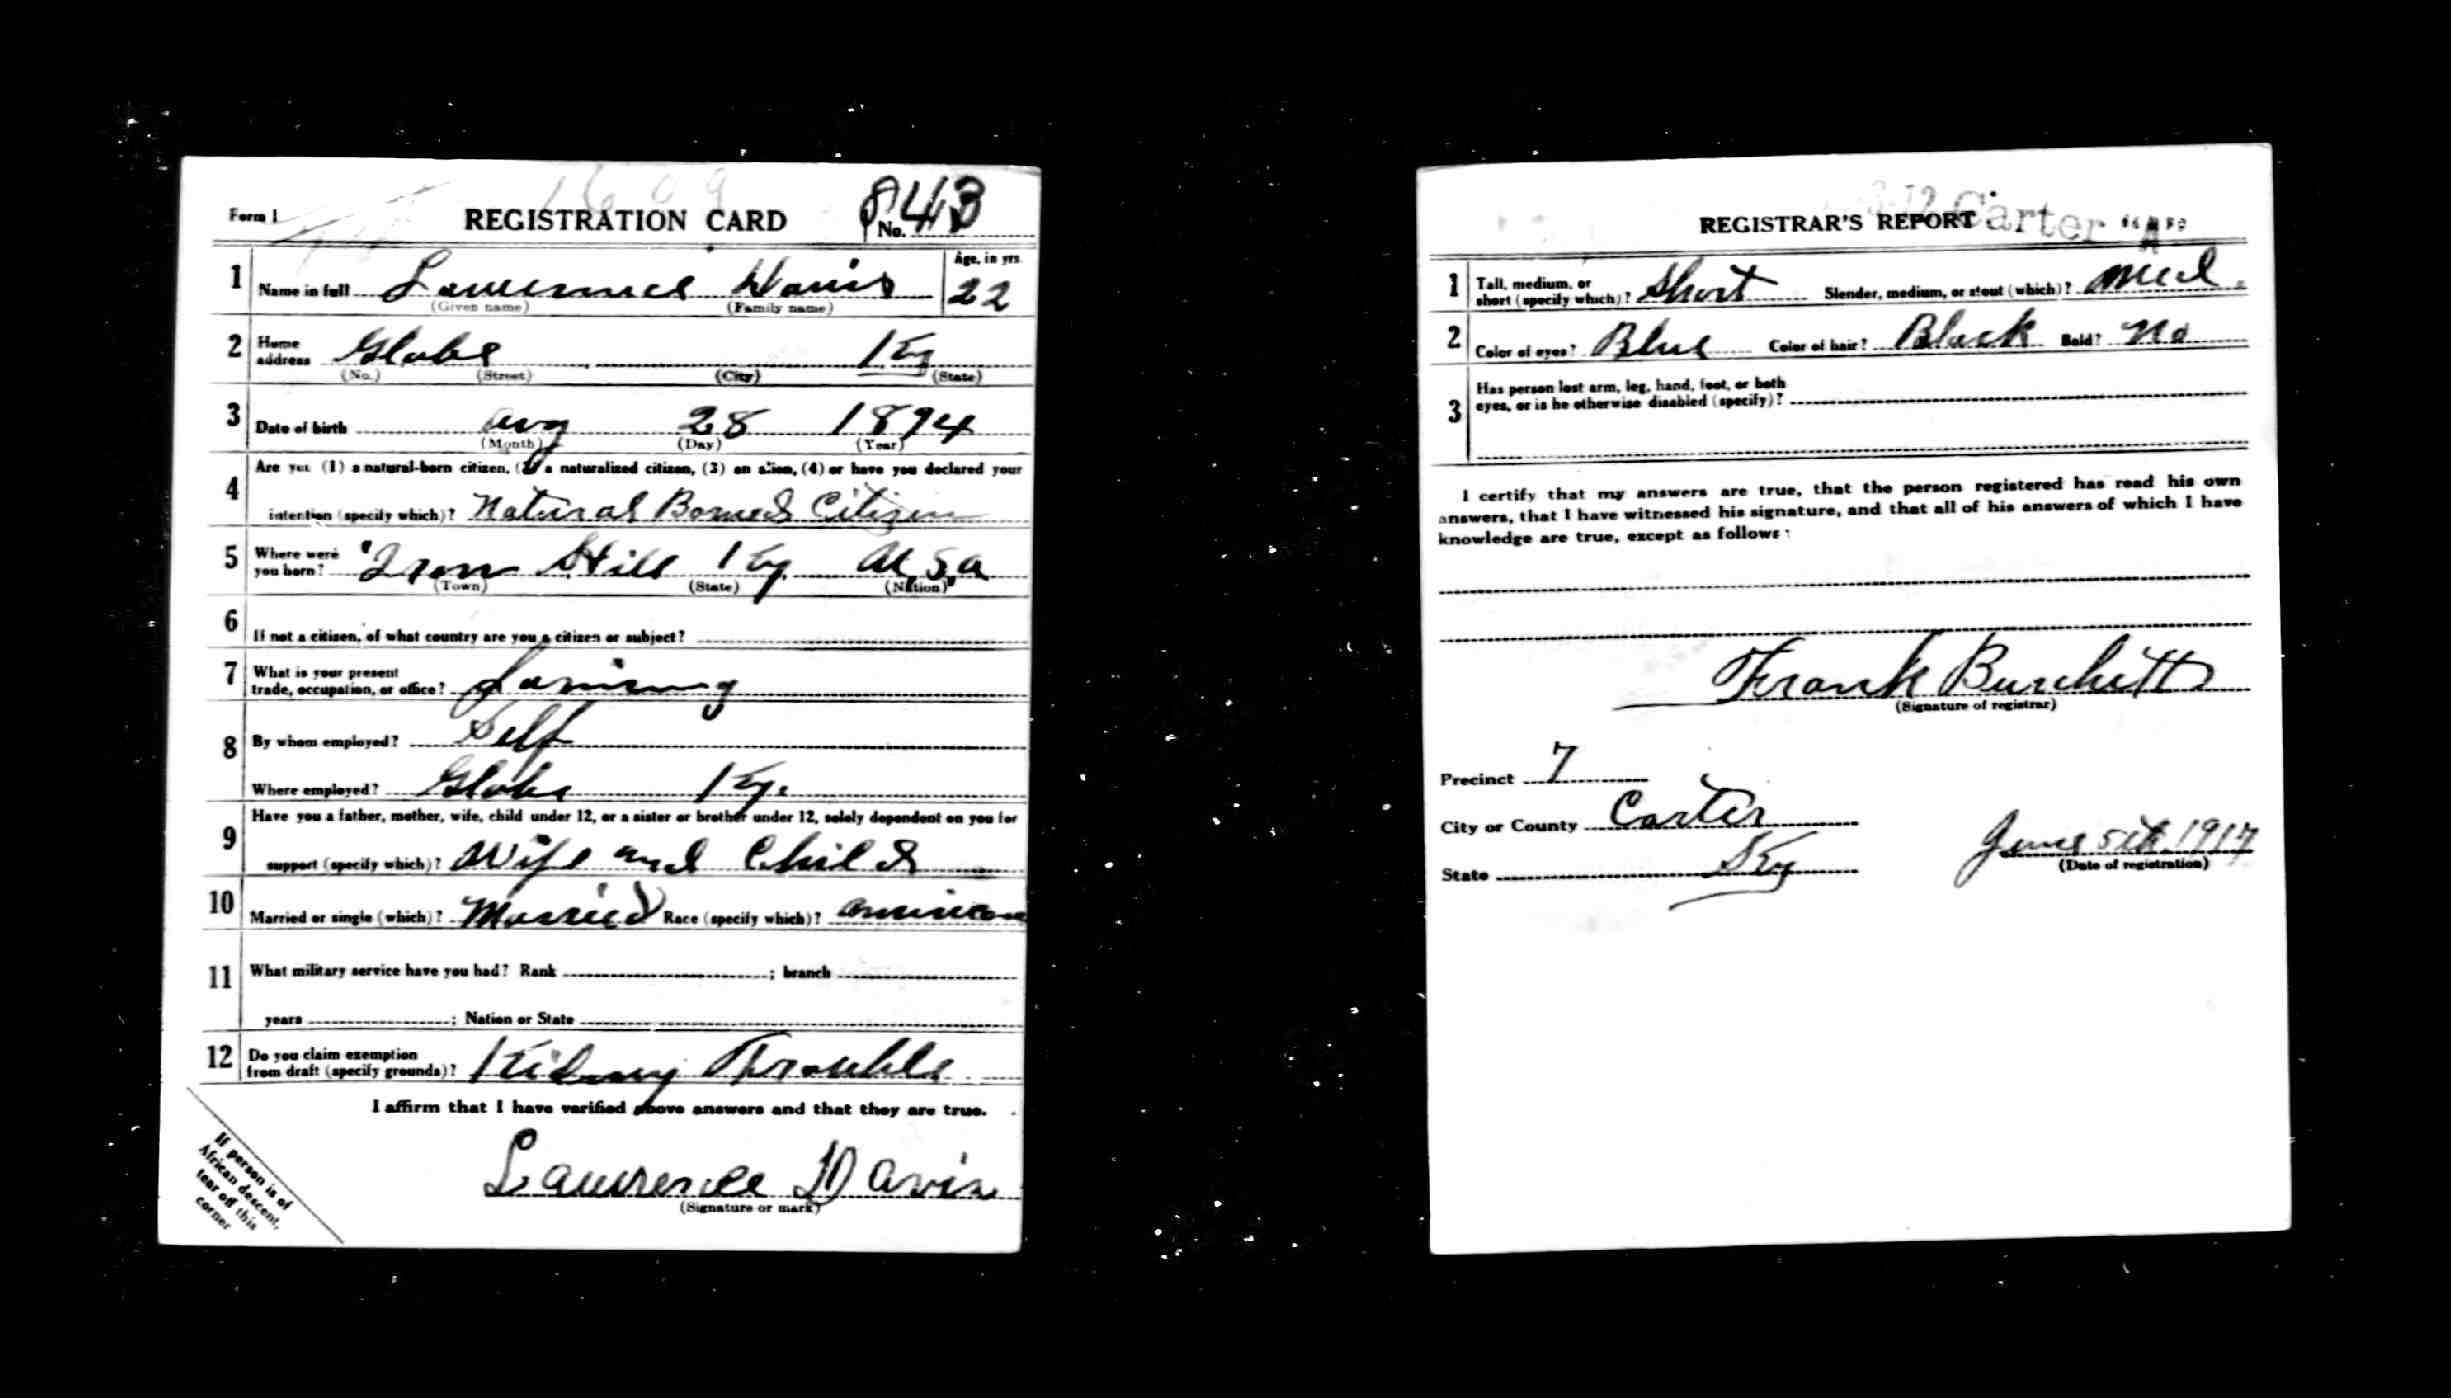 1609
Form 1 REGISTRATION CARD No. 843
1 Name in full Lawrence Davis Age, in yrs. 22
(Given name) (Family name)
2 Home address Globe Ky
(No.) (Street) (City) (State)
3 Date of birth Aug 28 1894
(Month) (Day) (Year)
4 Are you (1) a natural-born citizen, (2) a naturalized citizen, (3) an alien, (4) or have you declared your
intention (specify which)? Natural Borned Citizen
5 Where were you born? Iron Hill Ky. U S a
(Town) (State) (Nation)
6 If not a citizen, of what country are you a citizen or subject?
7 What is your present
trade, occupation, or office? farming
8 By whom employed? Self
Where employed? Globe Ky.
9 Have you a father, mother, wife, child under 12, or a sister or brother under 12, solely dependent on you for
support (specify which)? Wife and Child
10 Married or single (which)? Married Race (specify which)? American
11 What military service have you had? Rank ; branch
years ; Nation or State
12 Do you claim exemption
from draft (specify grounds)? Kidney Trouble
I affirm that I have verified above answers and that they are true.
Lawrence Davis
(Signature or mark)
If person is of
African descent,
tear off this
corner
Carter "A"
REGISTRAR'S REPORT
1 Tall, medium, or
short (specify which)? Short Slender, medium, or stout (which)? Med.
2 Color of eyes? Blue Color of hair? Black Bald? No
3 Has person lost arm, leg, hand, foot, or both
eyes, or is he otherwise disabled (specify)?
I certify that my answers are true, that the person registered has read his own
answers, that I have witnessed his signature, and that all of his answers of which I have
knowledge are true, except as follows:
Frank Burchett
(Signature of registrar)
Precinct 7
City or County Carter
State Ky
June 5th 1917
(Date of registration)